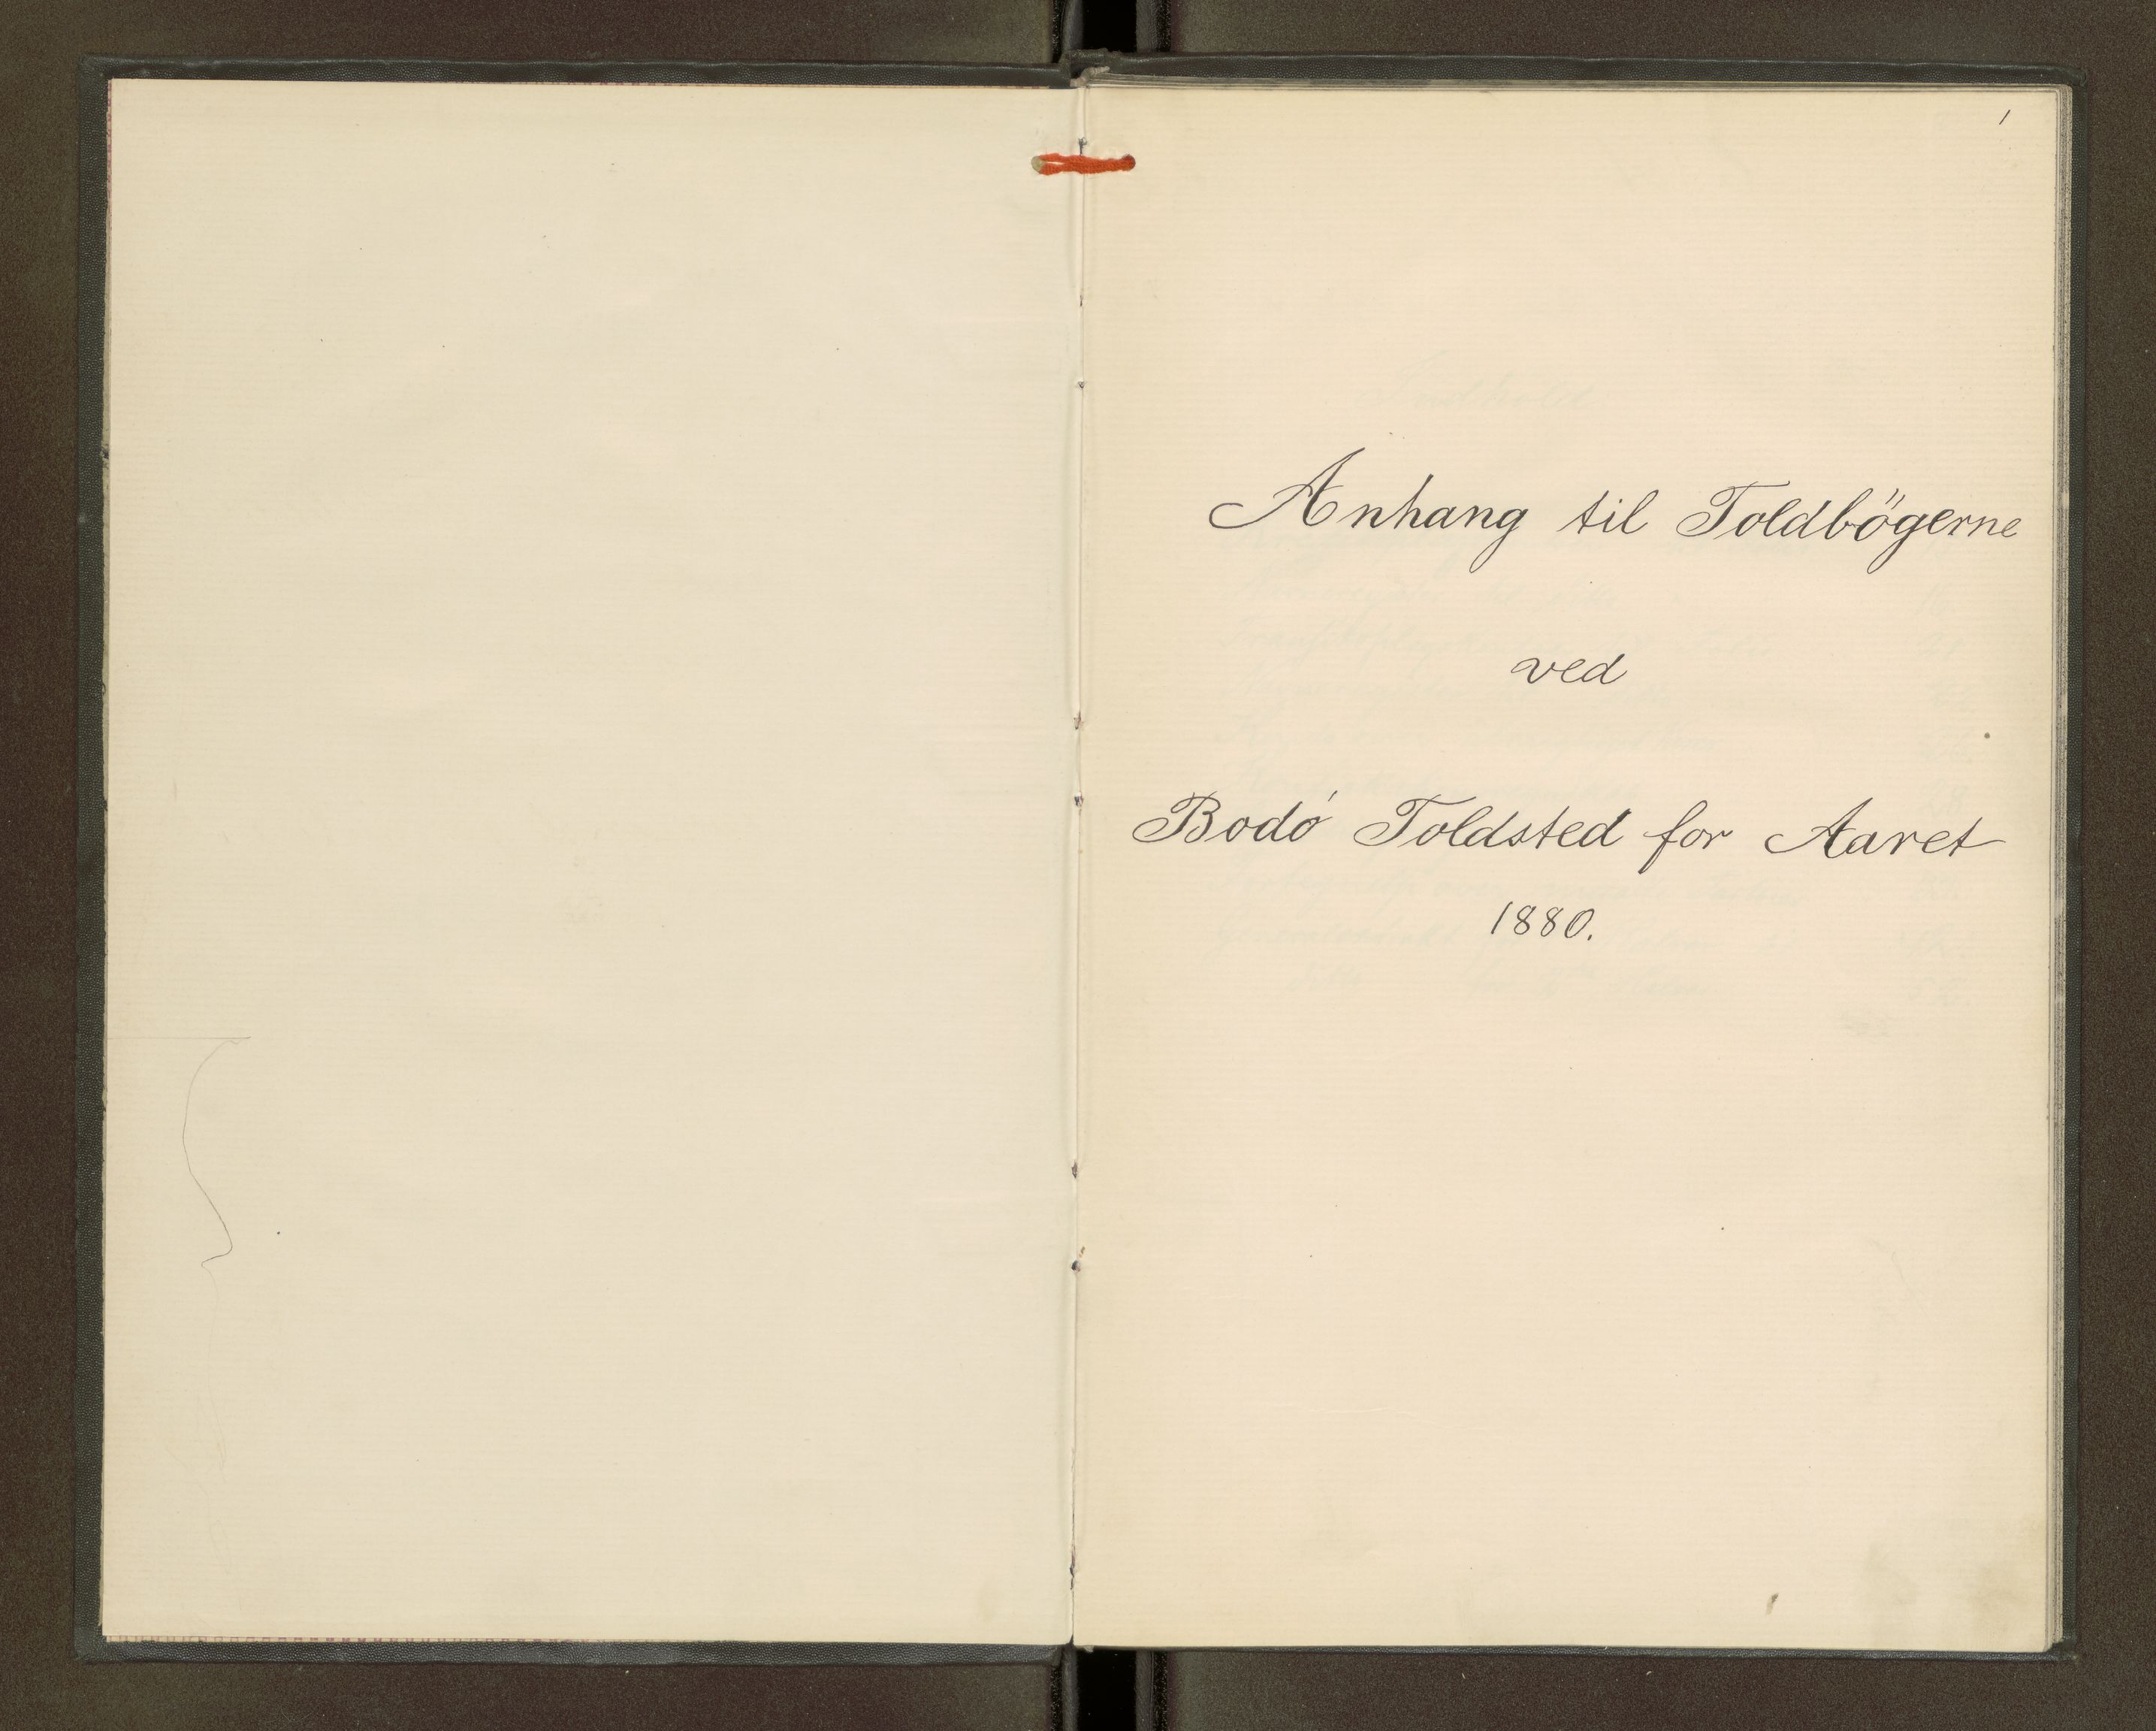 1
Anhang til Toldbögerne
ved
Bodó Toldsted for Aaret
1880.